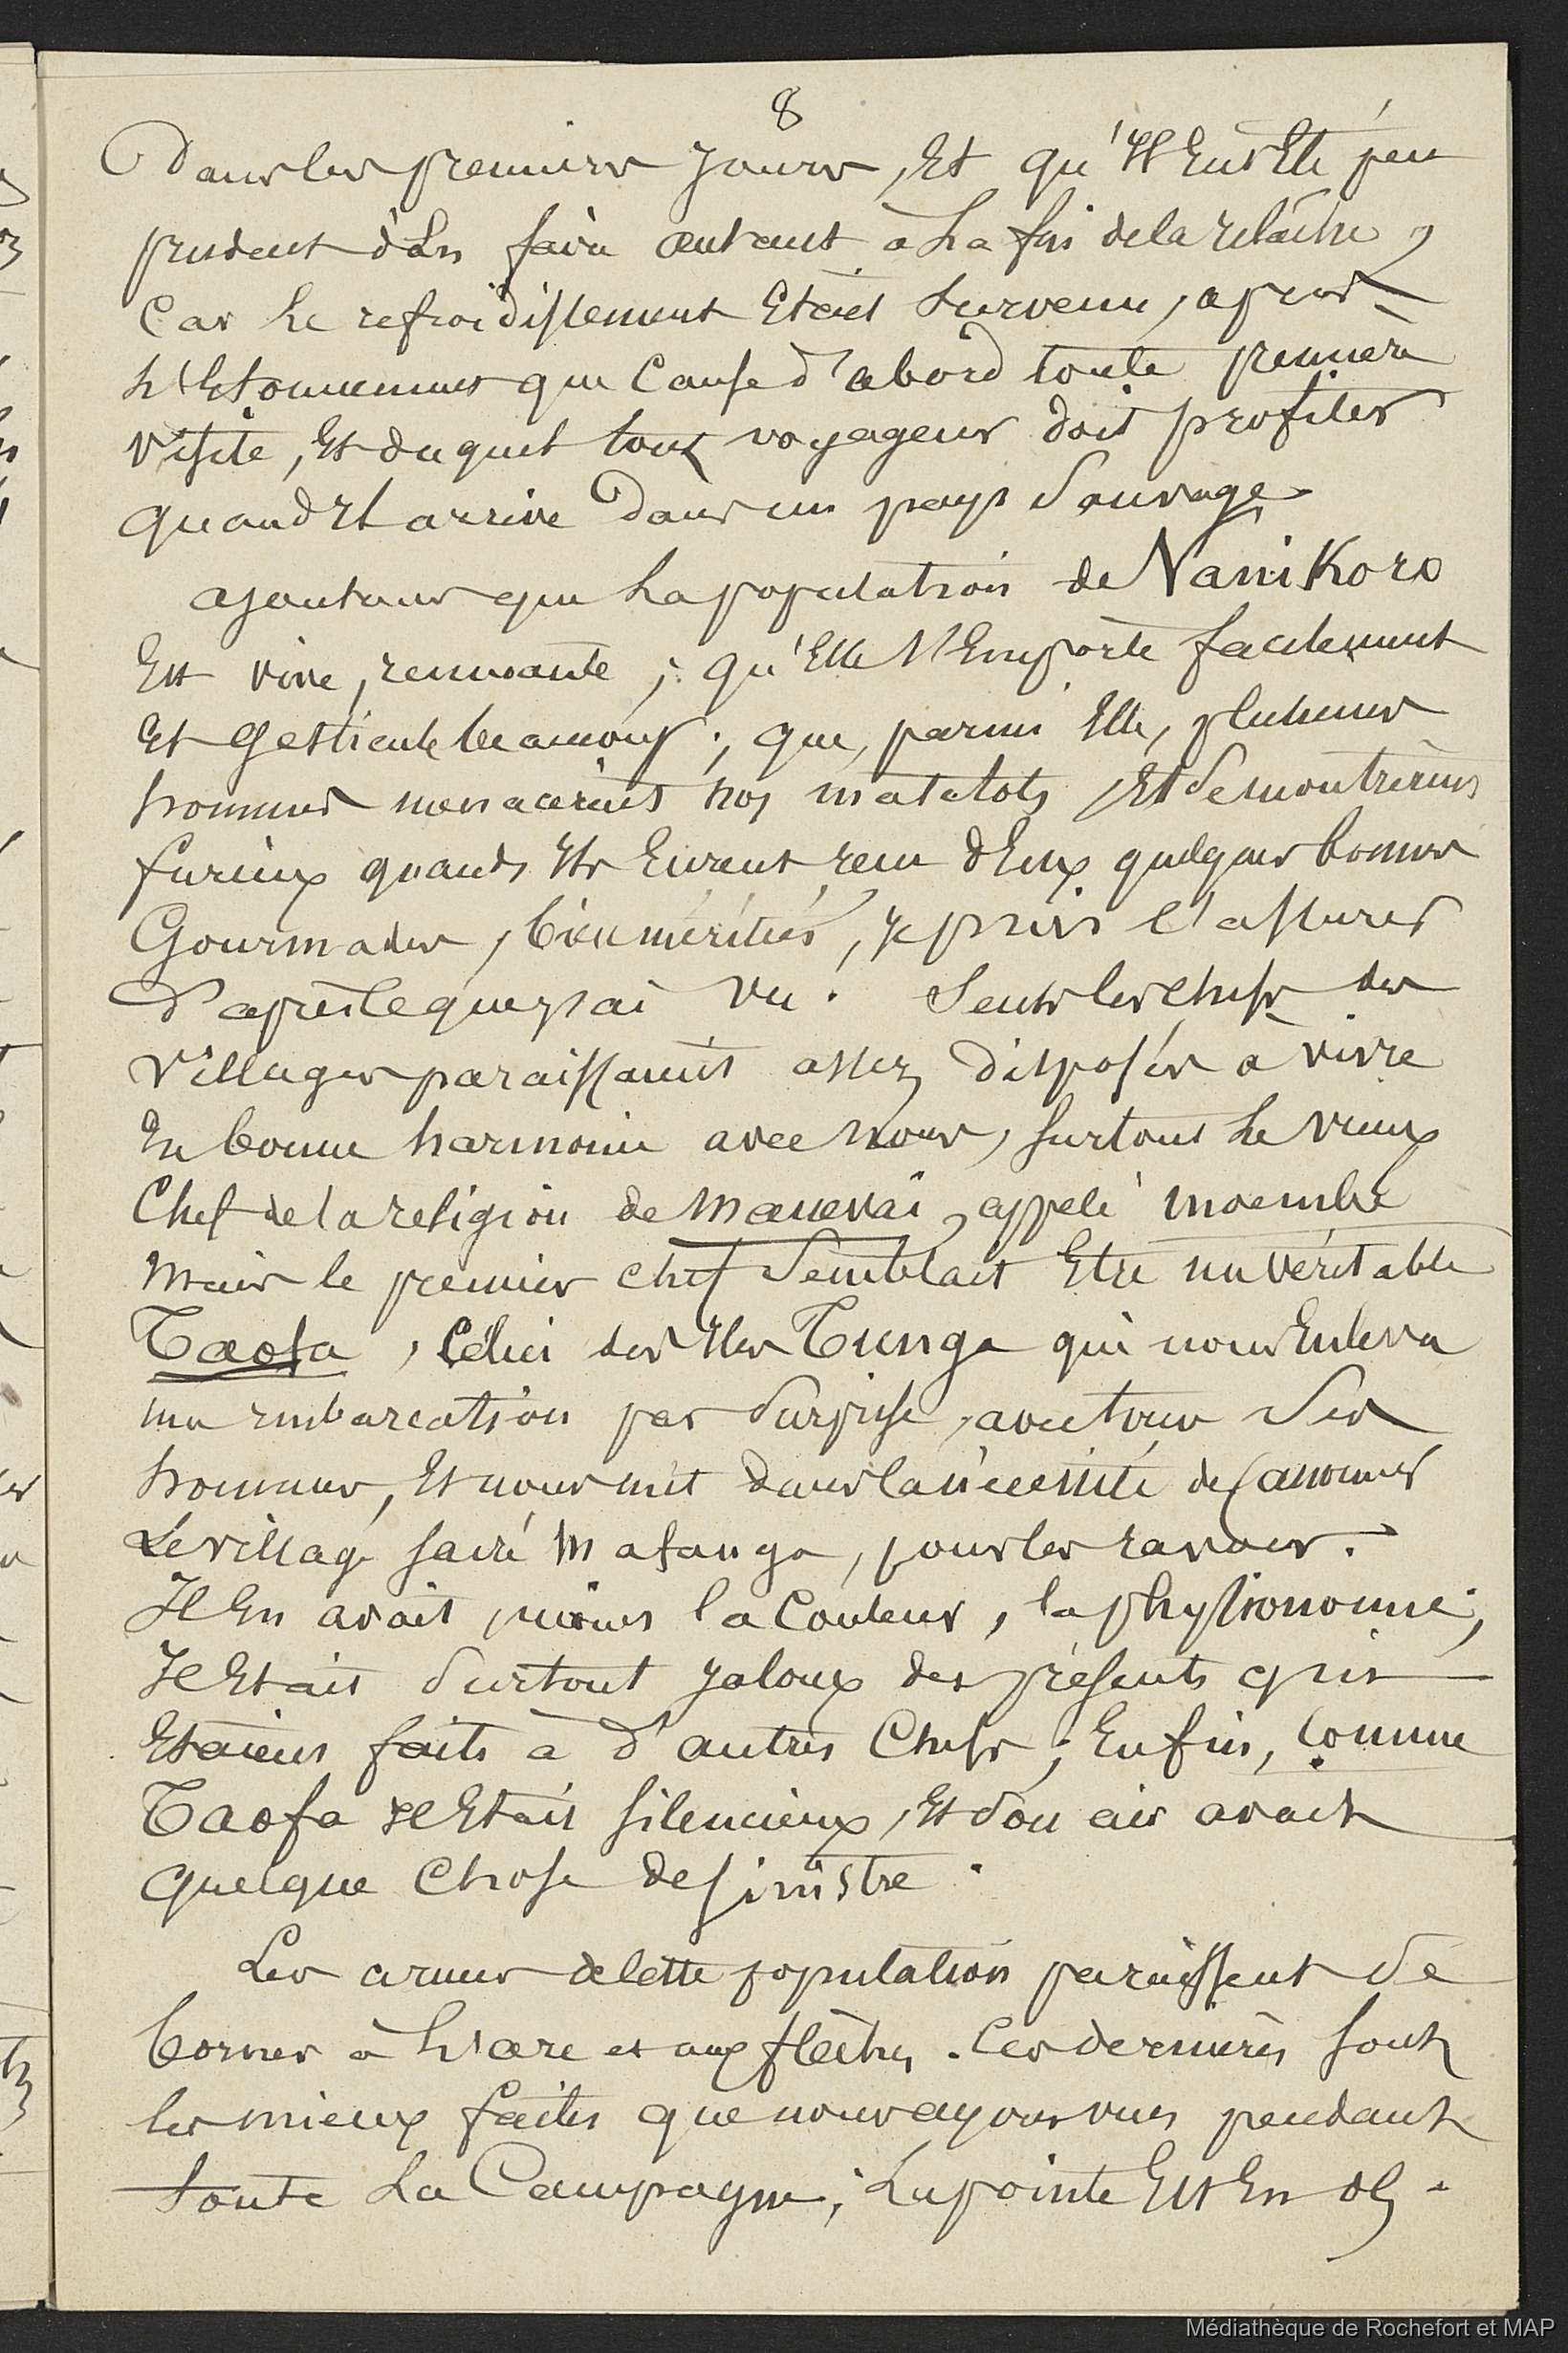 8
Dans les premiers jours, Et qu'Il Eut Eté peu
prudent d'En faire autant à La fin de la relâche,
Car Le refroidissement Etait Survenu, après
L'Etonnement que Cause d'abord toute première
visite, Et duquel tout voyageur doit profiter
quand Il arrive Dans un pays Sauvage.
ajoutons que La population de Vanikoro
Est vive, remuante ; qu'Elle S'Emporte facilement
Et gesticule beaucoup ; que, parmi Elle, plusieurs
hommes menacèrent nos matelots, Et Se montrèrent
furieux quand Ils Eurent reçu d'Eux quelques bonnes
Gourmades, bien méritées, je puis l'assurer
D'après ce que j'ai vu. Seuls les chefs des
villages paraissaient assez disposés a vivre
En bonne harmonie avec nous, Surtout Le vieux
Chef de la religion de Manevai, appelé moembé
mais le premier chef Semblait Etre un véritable
Taofa, Celui des Iles Tunga qui nous Enleva
une embarcation par Surprise, avec tous Ses
hommes, Et nous mit dans la nécessité de Canonner
Le village sacré Mafanga, pour les ravoir.
Il En avait même la Couleur, la physionomie ;
Il Etait Surtout jaloux des présents qui
Etaient faits à d'autres Chefs ; Enfin, Comme
Taofa Il Etait Silencieux, Et Son air avait
quelque Chose de Sinistre.
Les armes de Cette population paraissent Se
borner à L'arc et aux flèches. Ces dernières Sont
les mieux faites que nous ayons vues pendant
toute La Campagne ; La pointe Est En os.
Médiathèque de Rochefort et MAP